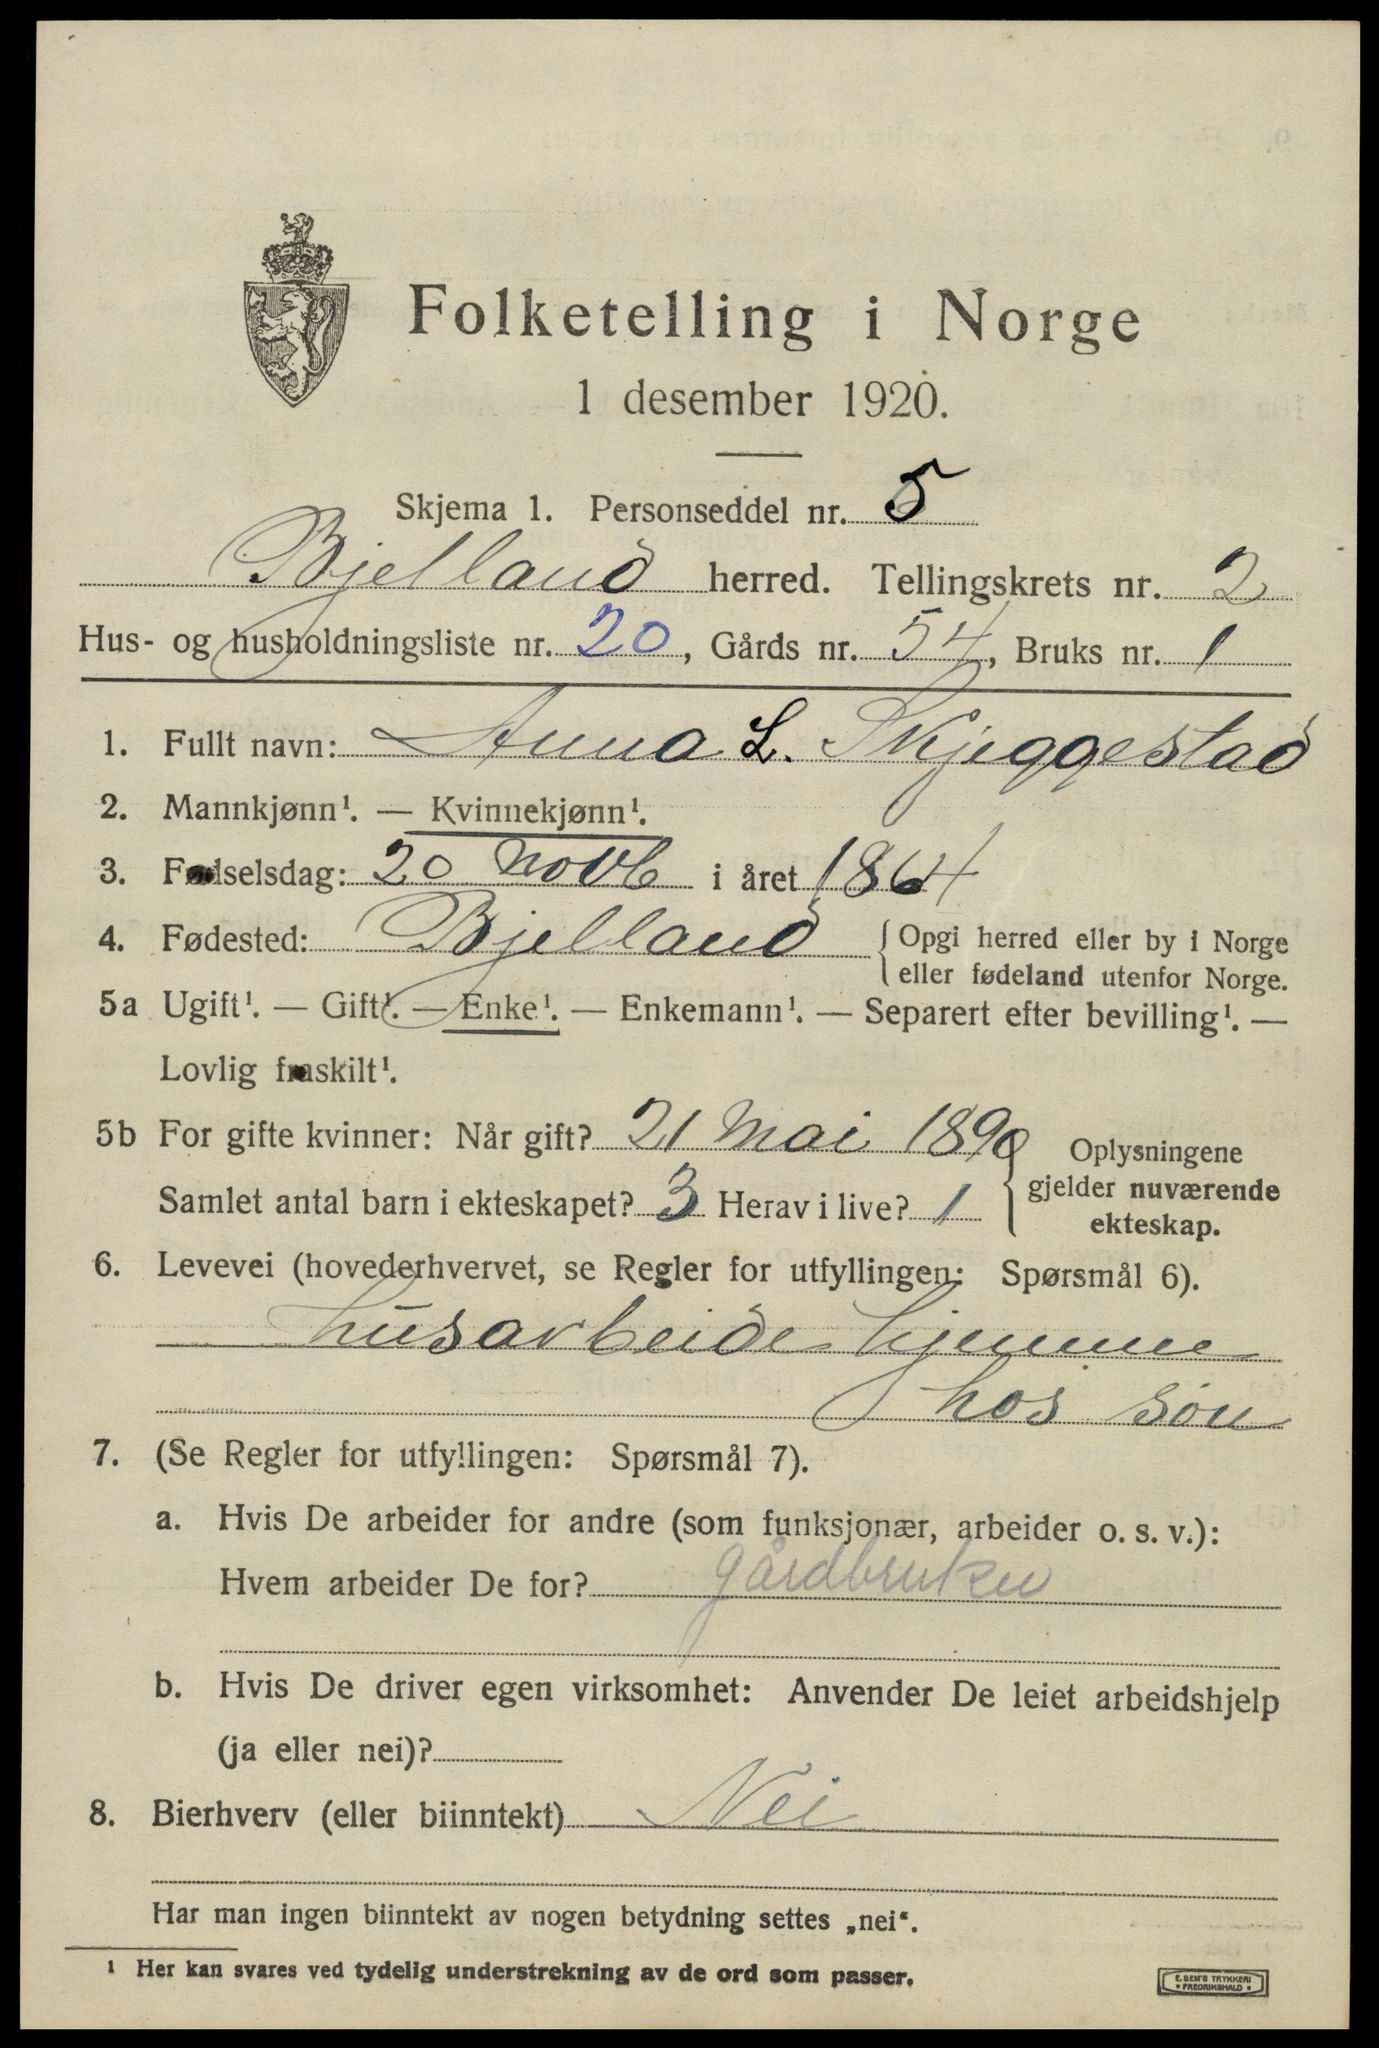 Folketelling i Norge
1 desember 1920.
Skjema 1. Personseddel nr. 5
Bjelland herred. Tellingskrets nr. 2
Hus- og husholdningsliste nr. 20, Gårds nr. 54, Bruks nr. 1
1. Fullt navn: Anna L. Skjeggestad
2. Mannkjønn¹. — Kvinnekjønn¹.
3. Fødselsdag: 20 Novb i året 1864
4. Fødested: Bjelland {Opgi herred eller by i Norge
eller fødeland utenfor Norge.
5a Ugift¹. — Gift¹. — Enke¹. — Enkemann¹. — Separert efter bevilling¹. —
Lovlig fraskilt¹.
5b For gifte kvinner: Når gift? 21 Mai 1890
Samlet antal barn i ekteskapet? 3 Herav i live? 1
{Oplysningene
gjelder nuværende
ekteskap.
6. Levevei (hovederhvervet, se Regler for utfyllingen: Spørsmål 6).
husarbeide hjemme
hos søn
7. (Se Regler for utfyllingen: Spørsmål 7).
a. Hvis De arbeider for andre (som funksjonær, arbeider o. s. v.):
Hvem arbeider De for? gårdbruker
b. Hvis De driver egen virksomhet: Anvender De leiet arbeidshjelp
(ja eller nei)?
8. Bierhverv (eller biinntekt) Nei
Har man ingen biinntekt av nogen betydning settes „nei“.
¹ Her kan svares ved tydelig understrekning av de ord som passer.
E. SEM'S TRYKKERI
• FREDRIKSHALD •